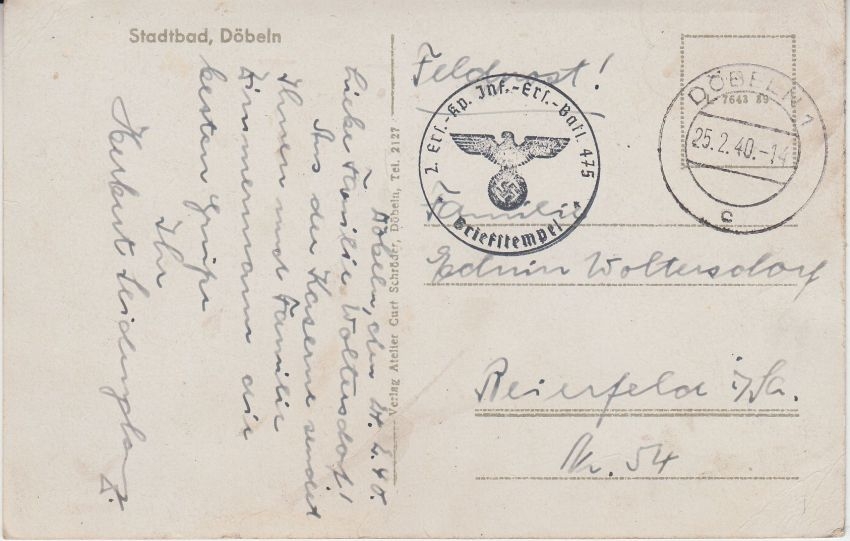 Stadtbad, Döbeln
Döbeln, den 24. 2. 40.
Liebe Familie Woltersdorf!
Aus der Kaserne sendet
Ihnen und Familie
Zimmermann die
besten Grüße
Ihr
Herbert
Verlag Atelier Curt Schröder, Döbeln, Tel. 2127
Feldpost!
2. Ers.-Kp. Inf.-Ers.-Batl. 475
Briefstempel
DÖBELN 1
25.2.40.-14
c
7643 89
Familie
Edwin Woltersdorf
Beierfeld i/Sa.
Nr. 54